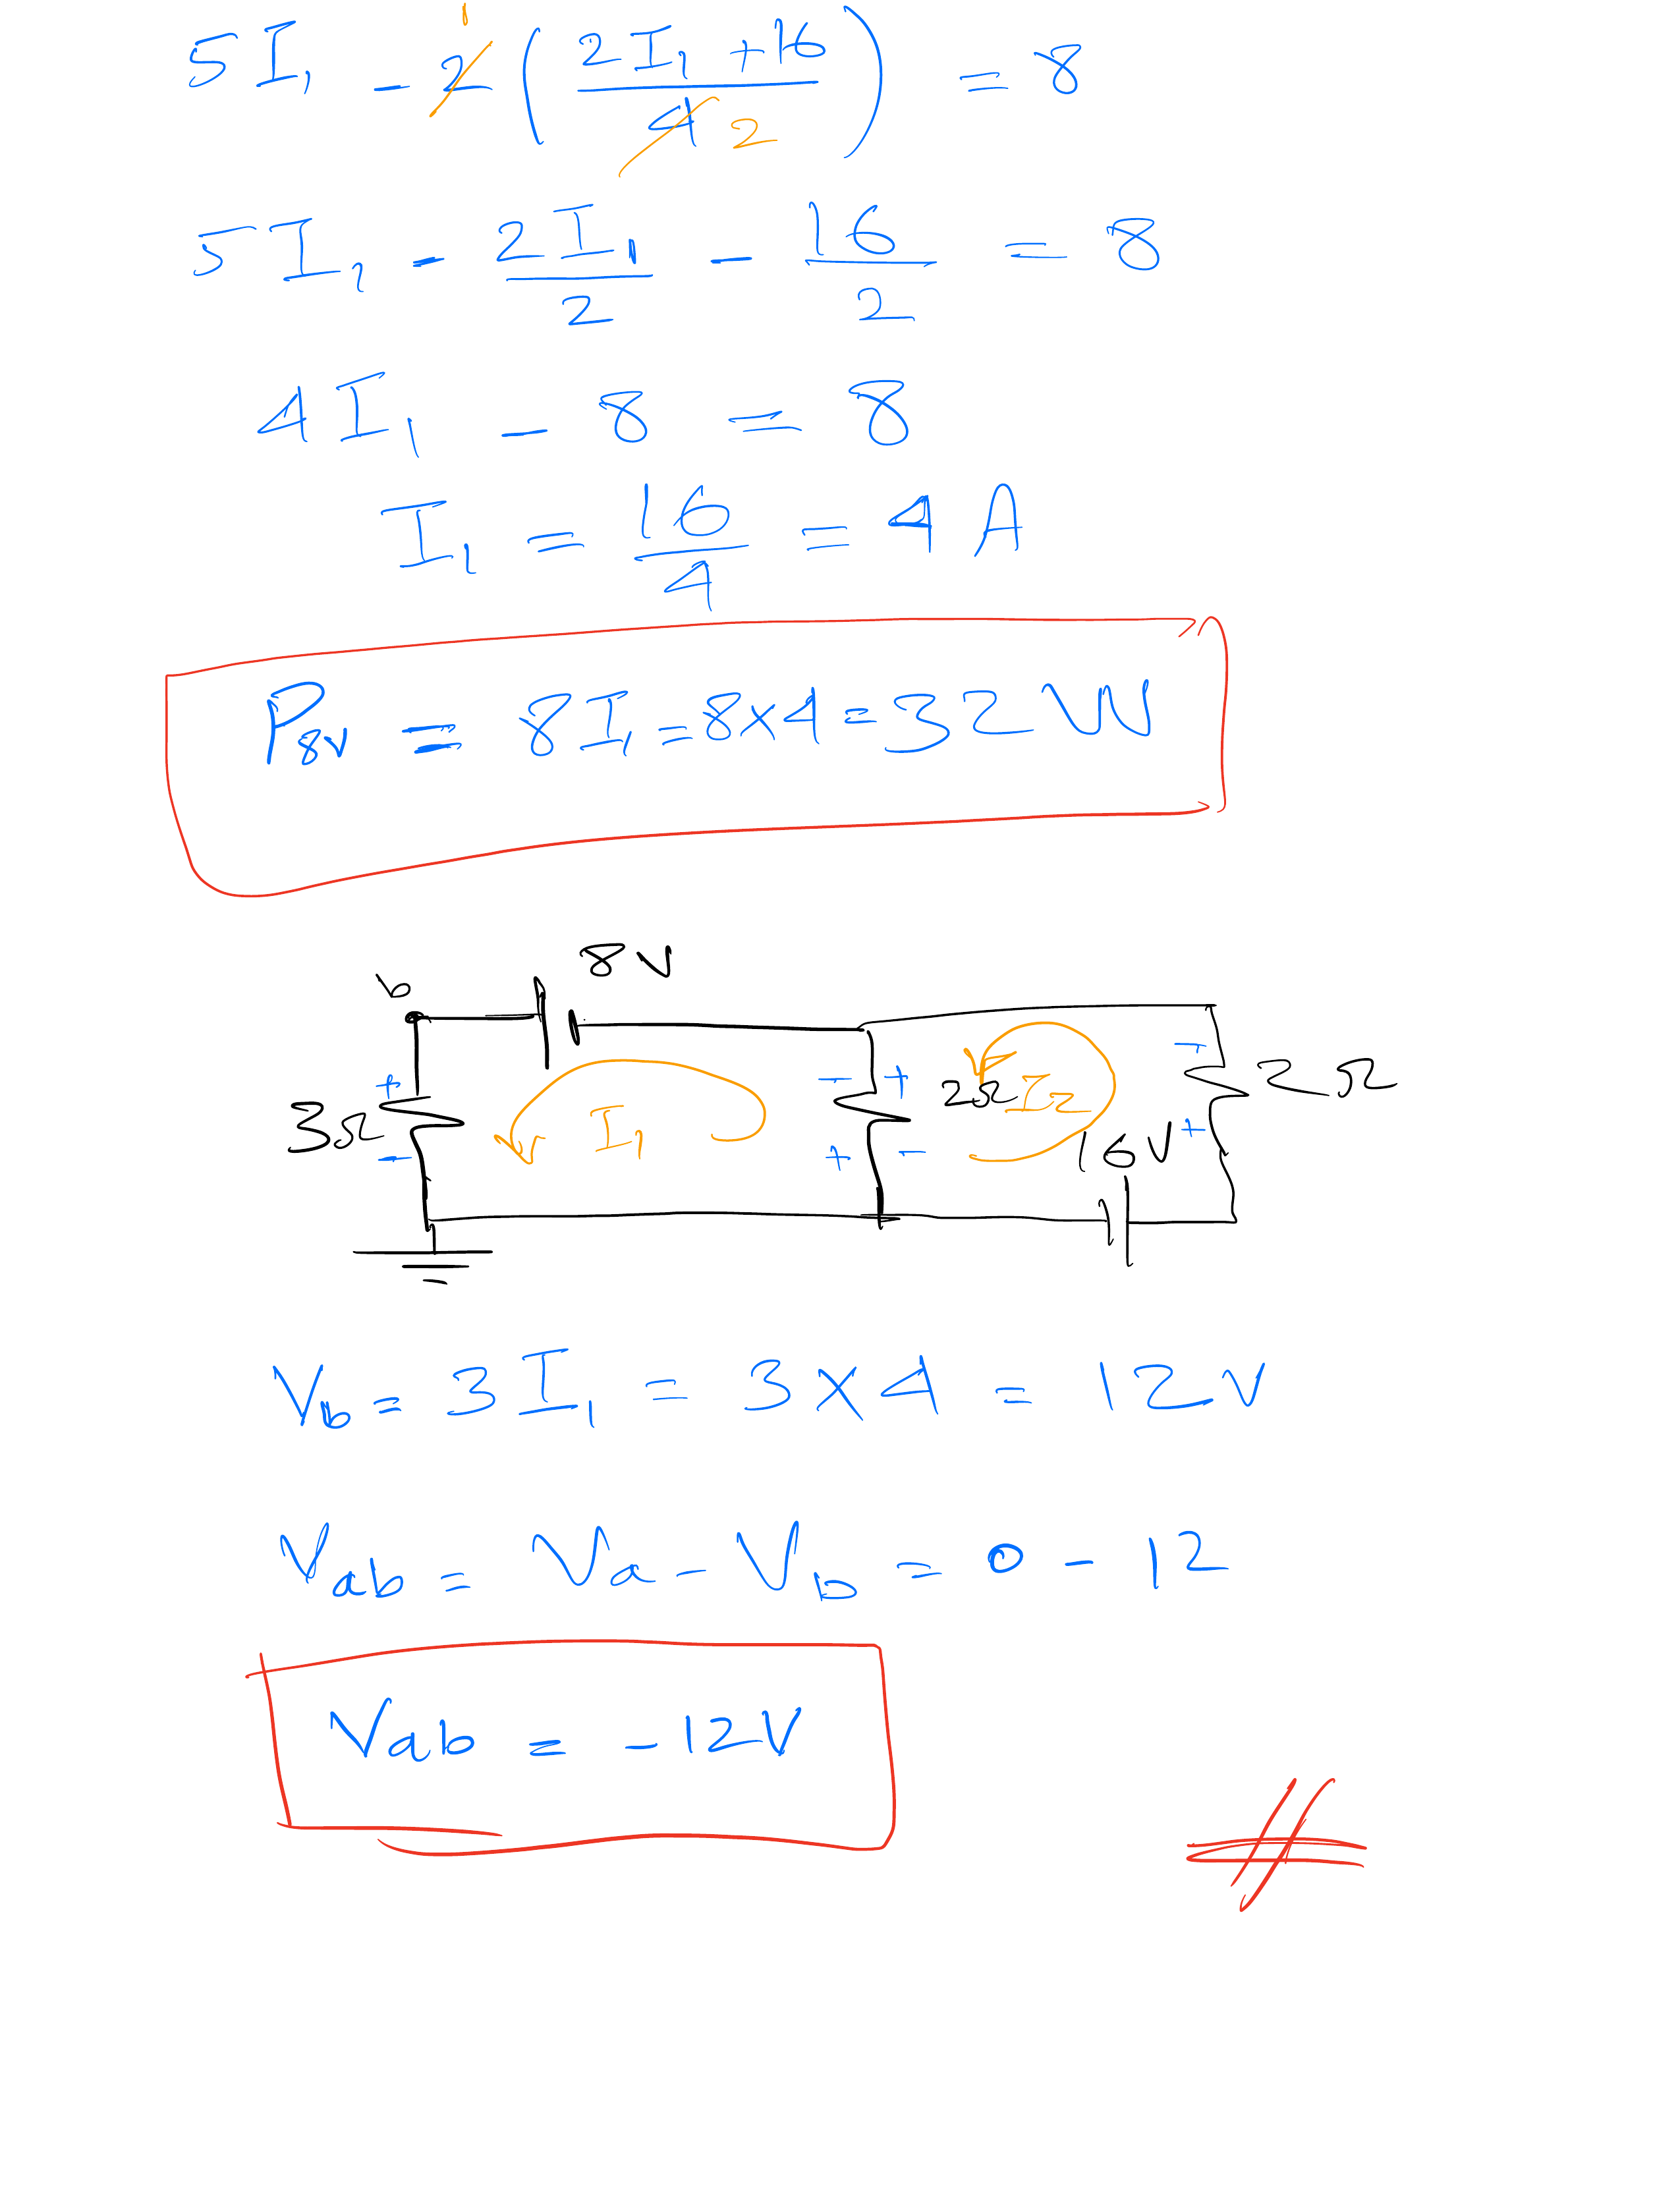 5I₁ - 2 1 ( (2I₁ + 16) / 4 2 ) = 8
5I₁ - 2I₁/2 - 16/2 = 8
4I₁ - 8 = 8
I₁ = 16/4 = 4 A
P8v = 8I₁ = 8×4 = 32 W
8V
b
+ - + - 2Ω I₂ 2Ω
3Ω I₁
- + - 16V +
Vb = 3I₁ = 3 × 4 = 12 V
Vab = Va - Vb = 0 - 12
Vab = -12V